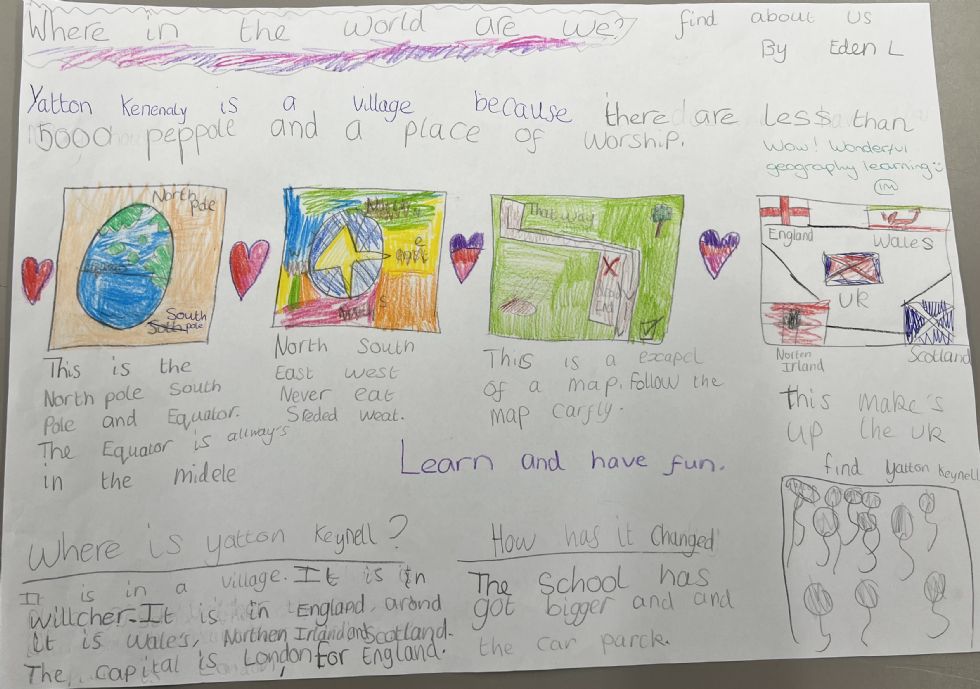 Where in the world are we? find about us
By Eden L
Yatton Kenenaly is a village because there are less than
5000 peppole and a place of worship.
Wow! Wonderful
geography learning
North
pole
South
pole
North pole
This is the
North pole South
Pole and Equator.
The Equator is allway's
in the midele
North South
East west
Never eat
Sreded weat.
That way
Dead
End
This is a escapel
of a map. Follow the
map carfly.
England
Wales
UK
Norten
Irland
Scotland
this make's
up the uk
Learn and have fun.
find yatton Keynell
Where is yatton Keynell?
It is in a village. It is in
Willcher. It is in England, arond
it is wales, Northen Irland and Scotland.
The capital is London for England.
How has it changed
The School has
got bigger and and
the car parck.